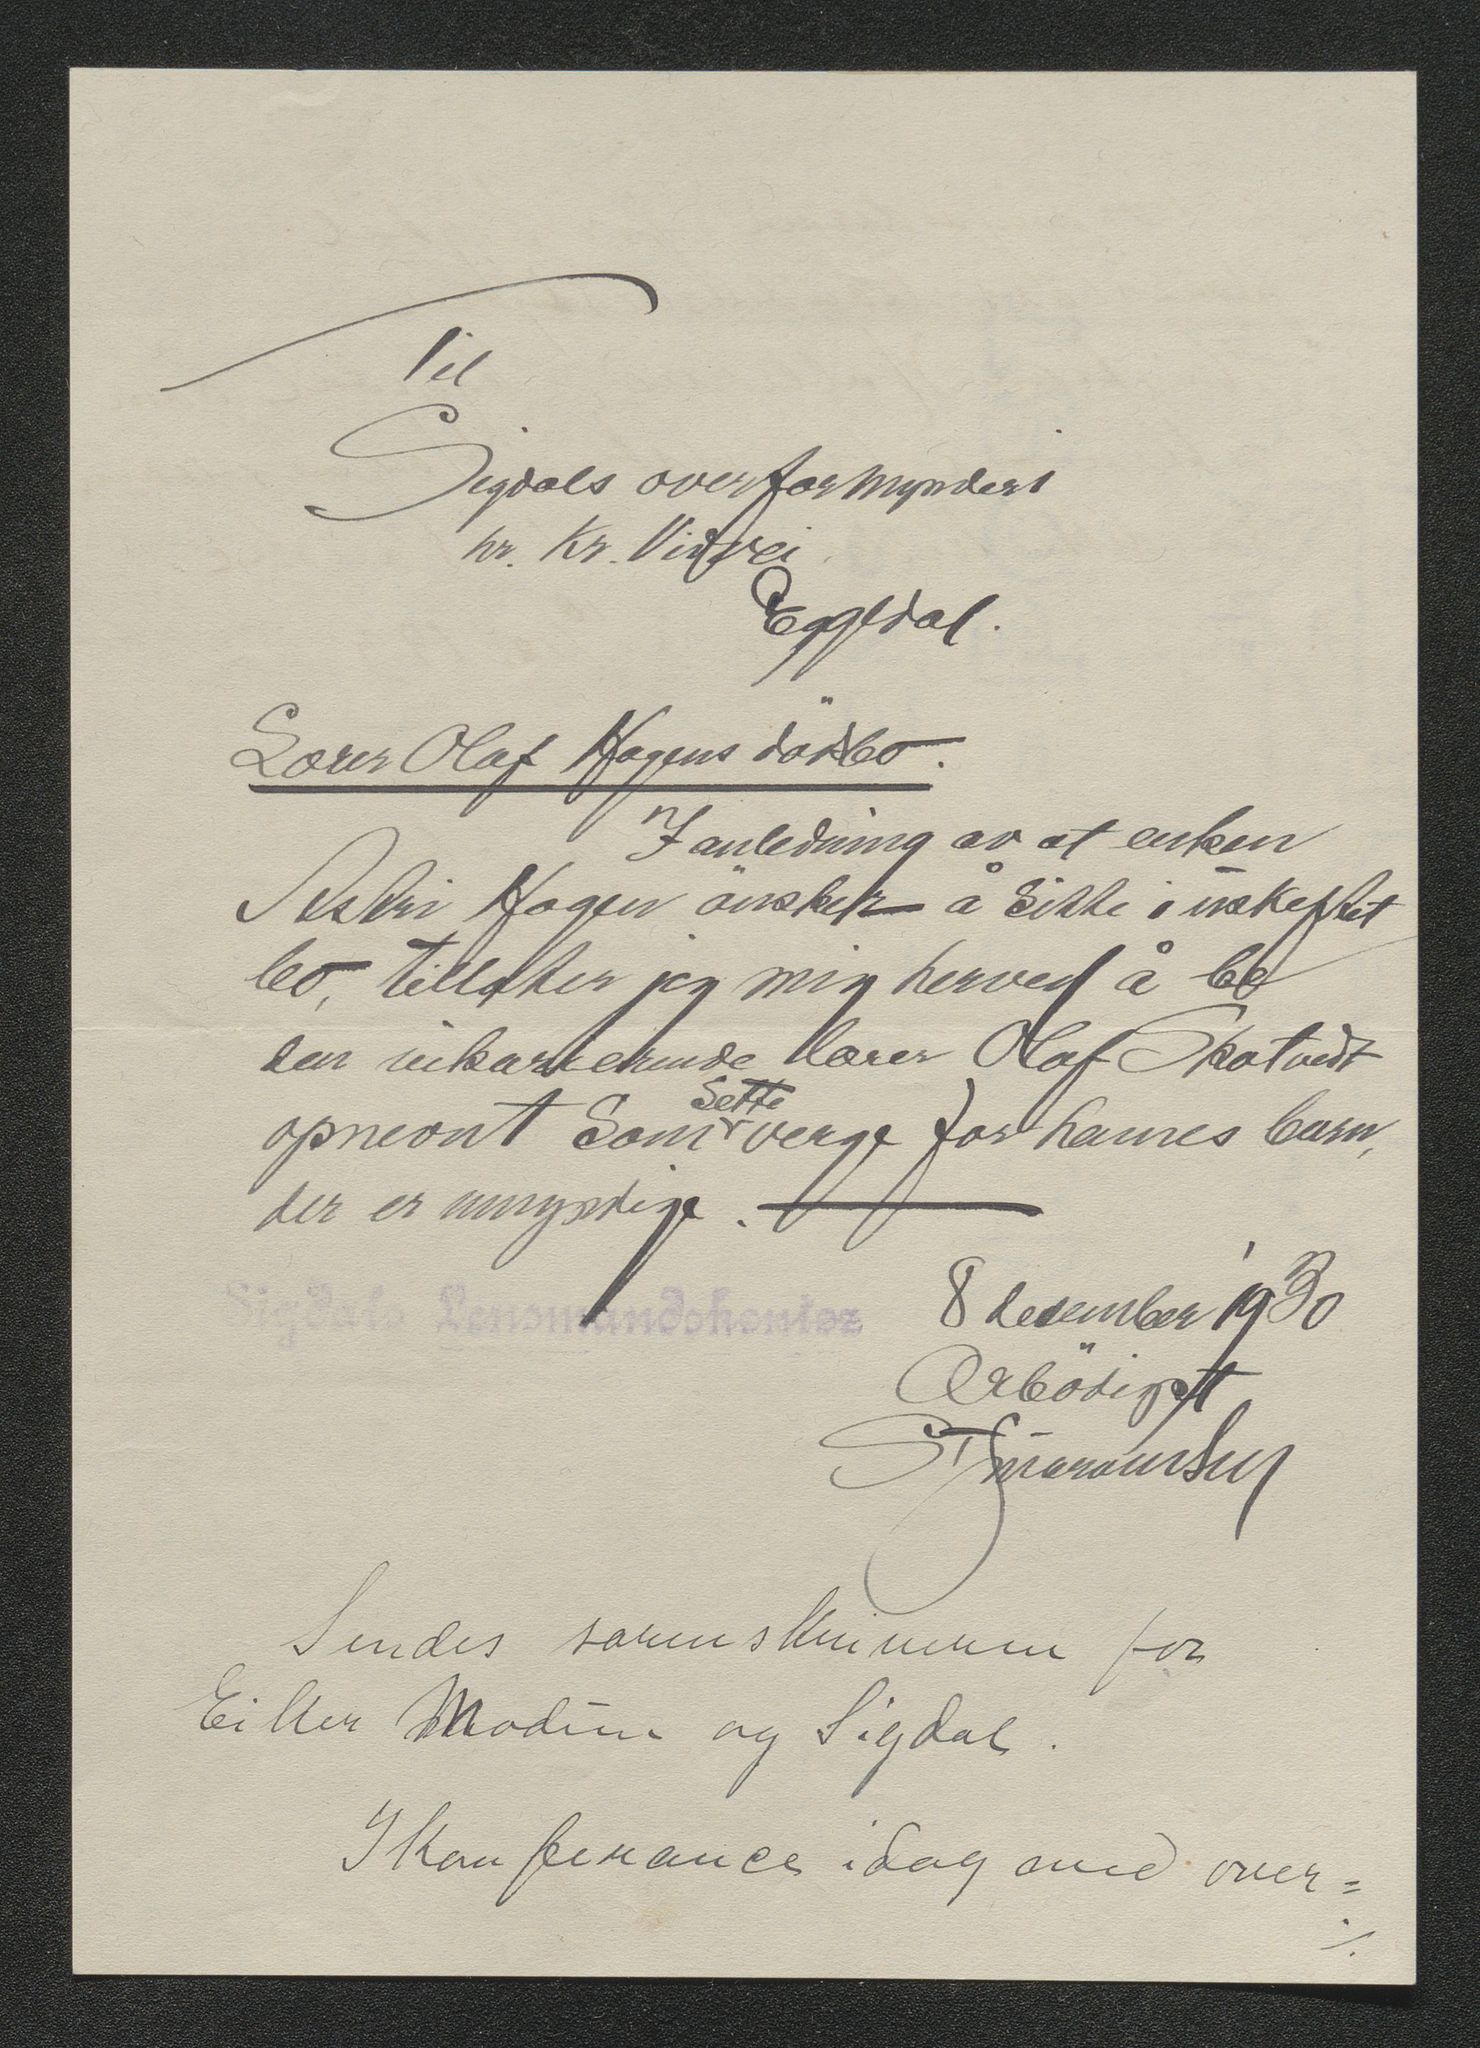 Til
Sigdals overformynderi
hr. Kr. Vidvei
Eggedal.
Lærer Olaf Hagens dödsbo.
I anledning av at enken
Hagen önsker å sitte i uskiftet
bo, tillater jeg mig herved å be
den vikarierende lærer Olaf Skatvedt
opnevnt som sette verge for hannes barn,
der er umyndige.
Sigdals Lensmandskontor
8 desember 1930
Ærbödigst
Sendes sorenskriveren for
Eiker Modum og Sigdal.
I konferance idag med over=
./.